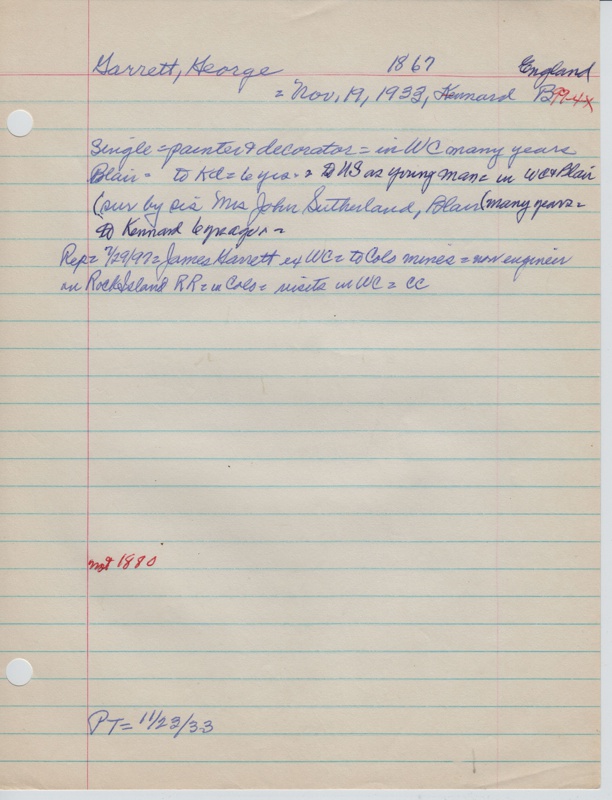 Garrett, George 1867 England
= Nov. 19, 1933, Kennard B 99-4x
Single = painter & decorator = in WC many years
Blair = to Kd = 6 yrs = to US as young man = in WC & Blair
(sur by sis Mrs John Sutherland, Blair (many years =
to Kennard 6 yrs ago =
Rep = 7/29/97 = James Garrett ex WC = to Colo mines = now engineer
on Rock Island RR = in Colo = visits in WC = CC
not 1880
PT = 11/23/33